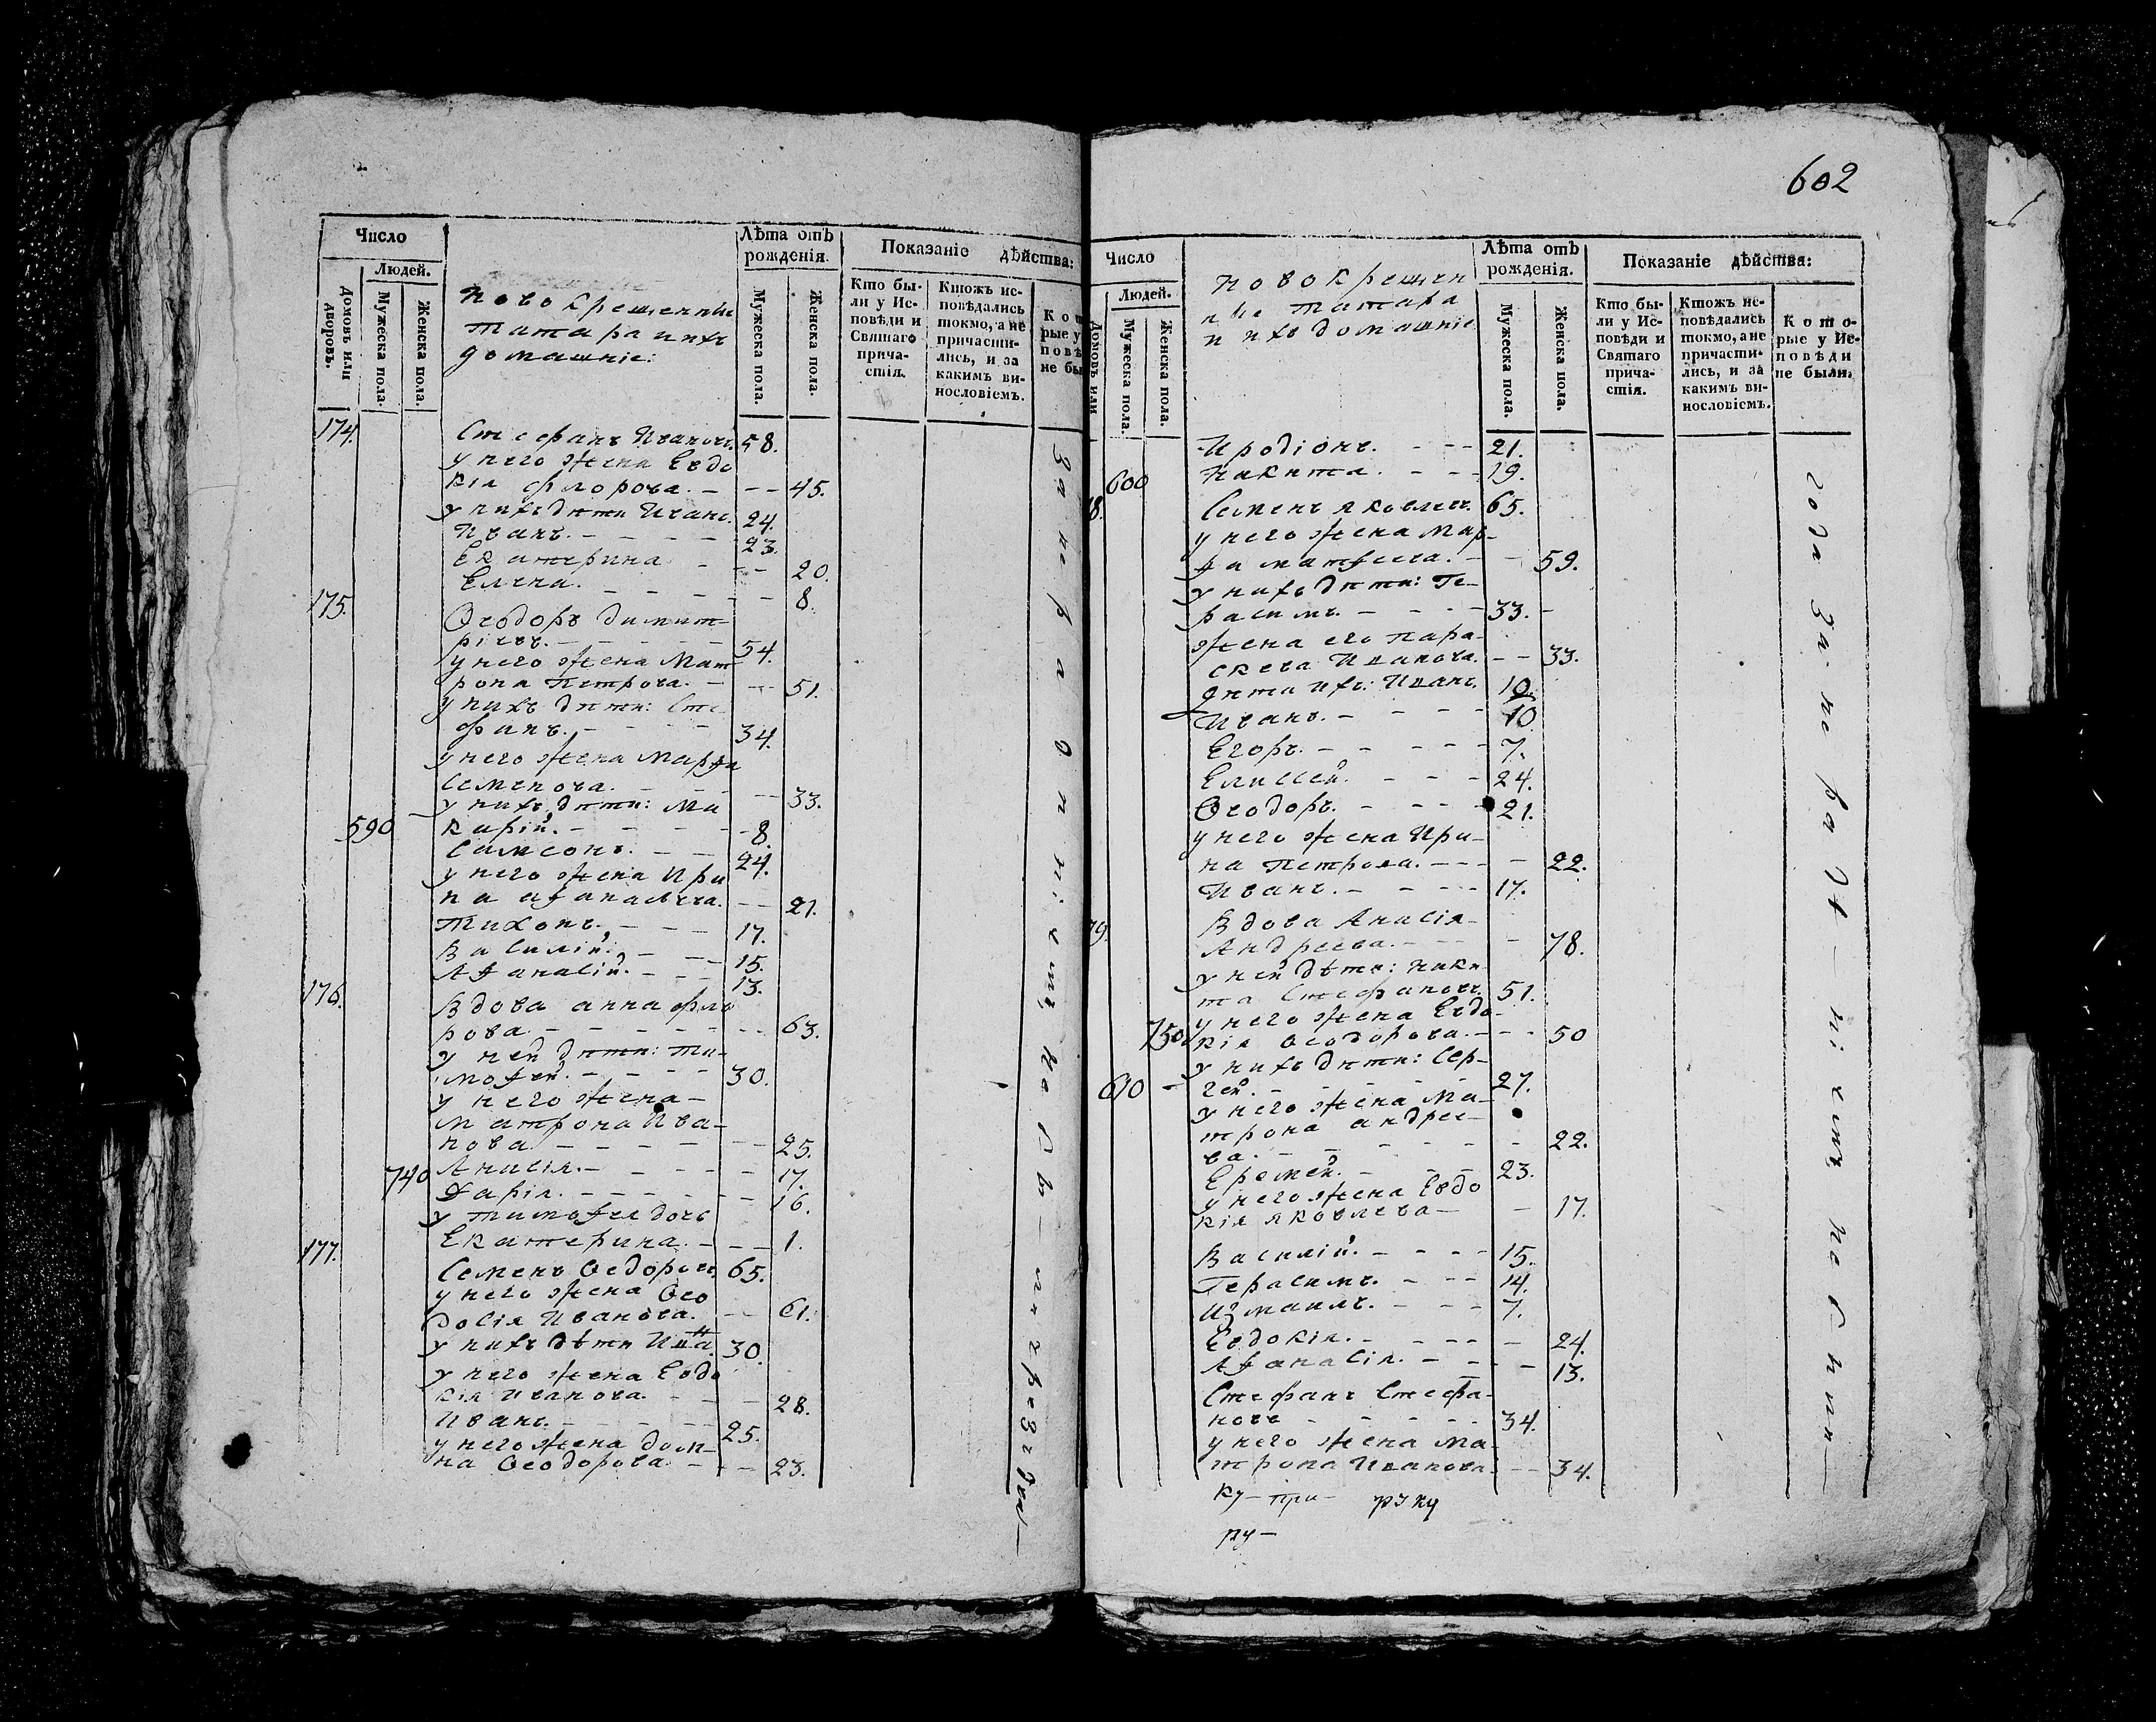 602
Число
Людей.
Домовъ или дворовъ.
Мужеска пола.
Женска пола.
Новокрещенные
татара и ихъ
домашніе:
Лѣта отъ
рожденія.
Мужеска пола.
Женска пола.
Показаніе дѣйства:
Кто бы-
ли у Ис-
повѣди и
Святаго
прича-
стія.
Ктожъ ис-
повѣдались
токмо, а не
причасти-
лись, и за
какимъ ви-
нословіемъ.
Кот
рые у
повѣ
не бы
174. Стефанъ Ивановъ. 58.
у него жена Евдо
кія Флорова. - - - 45.
у нихъ дѣти Иванъ. 24.
Иванъ. - - - - - 23.
Екатерина - - - 20.
Елена. - - - - - 8.
175. Ѳеодоръ Димит-
ріевъ. - - - - - 54.
у него жена Мат
рона Петрова. - - - 51.
у нихъ дѣти: Сте
фанъ. - - - - 34.
у него жена Марѳа
Семенова. - - - - 33.
у нихъ дѣти: Ма
590 карій. - - - - - 8.
Самсонъ. - - - 24.
у него жена Ири
на Аѳанасьева. - - 21.
Тихонъ. - - - - 17.
Василій. - - - - 15.
Аѳанасій. - - - 13.
176. Вдова Анна Фло
рова. - - - - - - 63.
у ней дѣти: Ти-
моѳей. - - - - 30.
у него жена -
Матрона Ива-
нова - - - - - - 25.
740 Анисія. - - - - - 17.
Дарія. - - - - - - 16.
у Тимоѳея дочь
Екатерина. - - - 1.
177. Семенъ Ѳедоровъ 65.
у него жена Ѳео
досія Иванова. - - 61.
у нихъ дѣти Иванъ 30.
у него жена Евдо
кія Иванова. - - - 28.
Иванъ. - - - - - 25.
у него жена Дом-
на Ѳеодорова - - - 23.
За нераденіемъ не бы-
Число
Людей.
Домовъ или
Мужеска пола.
Женска пола.
Новокрещен
ные татара
и ихъ домашніе
Лѣта отъ
рожденія.
Мужеска пола.
Женска пола.
Показаніе дѣйства:
Кто бы-
ли у Ис-
повѣди и
Святаго
прича-
стія.
Ктожъ ис-
повѣдались
токмо, а не
причасти-
лись, и за
какимъ ви-
нословіемъ.
Кото-
рые у Ис-
повѣди
не были.
Иродіонъ. - - - 21.
600 Никита. - - - 19.
8. Семенъ Яковлевъ. 65.
у него жена Мар-
ѳа Матѳеева. - - 59.
у нихъ дѣти: Ге-
расимъ. - - - - 33. -
жена его Пара-
скева Иванова. - - 33.
дѣти ихъ: Иванъ. 10.
Иванъ. - - - - 10
Егоръ. - - - - - 7.
Елисей. - - - 24.
Ѳеодоръ. - - - - 21.
у него жена Ири-
на Петрова. - - - - 22.
Иванъ. - - - - 17.
79. Вдова Анисія -
Андреева. - - - 78.
у ней дѣти: Ники
та Стефановъ. 51.
у него жена Евдо-
750 кія Ѳеодорова. - - - 50
у нихъ дѣти: Сер-
610 - гей. - - - - - 27.
у него жена Ма-
трона Андрее-
ва. - - - - - - 22.
Еремей. - - - 23.
у него жена Евдо
кія Яковлева - - 17.
Василій. - - - - 15.
Герасимъ. - - - 14.
Измаилъ. - - - 7.
Евдокія. - - - - - 24.
Аѳанасія. - - - - 13.
Стефанъ Стефа-
новъ - - - - - 34.
у него жена Ма-
трона Иванова. - - 34.
года за не ра
ку- при- руку
ру-